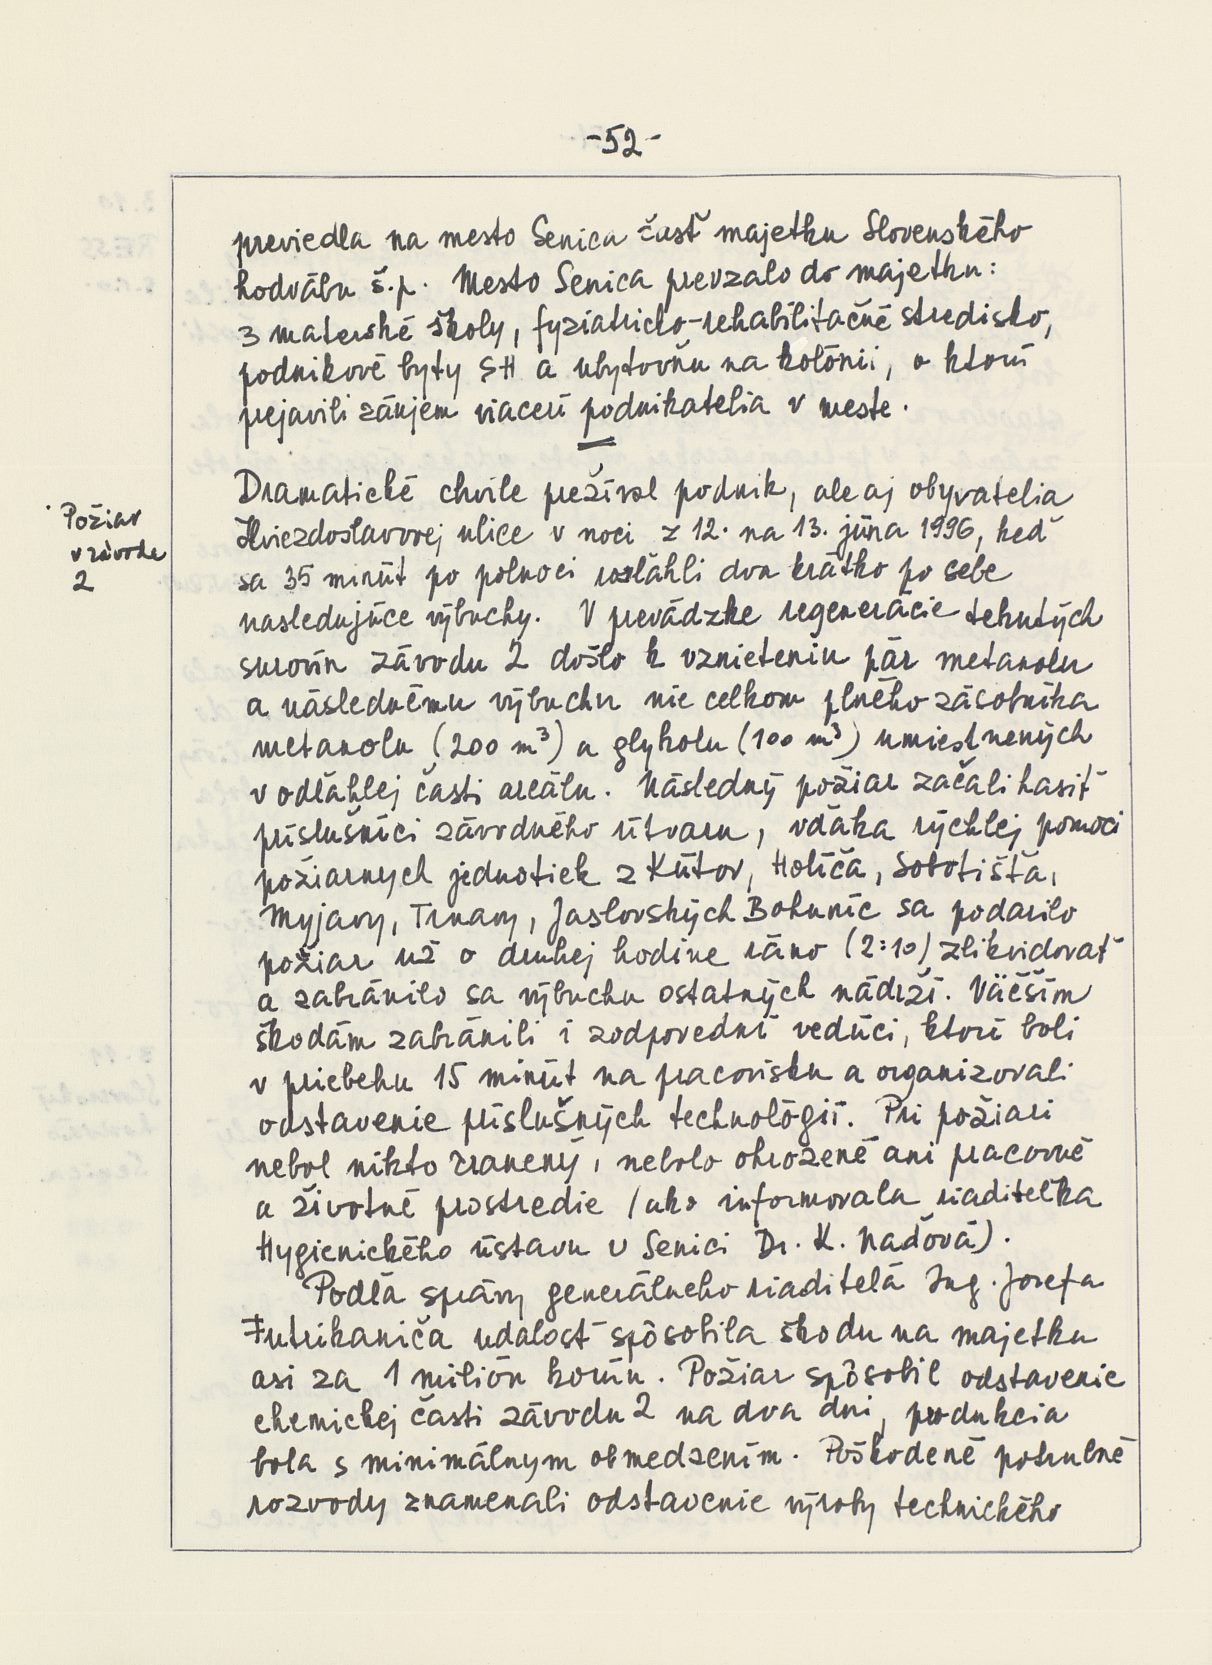 -52-
previedla na mesto Senica časť majetku Slovenského
hodvábu š.p. Mesto Senica prevzalo do majetku:
3 materské školy, fyziatricko-rehabilitačné stredisko,
podnikové byty SH a ubytovňu na kolónii, o ktorú
prejavili záujem viacerí podnikatelia v meste.
Dramatické chvíle prežíval podnik, ale aj obyvatelia
Požiar
v závode
2
Hviezdoslavovej ulice v noci z 12. na 13. júna 1996, keď
sa 35 minút po polnoci rozľahli dva krátko po sebe
nasledujúce výbuchy. V prevádzke regenerácie tekutých
surovín závodu 2 došlo k vznieteniu pár metanolu
a následnému výbuchu nie celkom plného zásobníka
metanolu (200 m³) a glykolu (100 m³) umiestnených
v odľahlej časti areálu. Následný požiar začali hasiť
príslušníci závodného útvaru, vďaka rýchlej pomoci
požiarnych jednotiek z Kútov, Holíča, Sobotišťa,
Myjavy, Trnavy, Jaslovských Bohuníc sa podarilo
požiar už o druhej hodine ráno (2:10) zlikvidovať
a zabránilo sa výbuchu ostatných nádrží. Väčším
škodám zabránili i zodpovední vedúci, ktorí boli
v priebehu 15 minút na pracovisku a organizovali
odstavenie príslušných technológií. Pri požiari
nebol nikto zranený, nebolo ohrozené ani pracovné
a životné prostredie (ako informovala riaditeľka
Hygienického ústavu v Senici Dr. K. Naďová).
Podľa správy generálneho riaditeľa Ing. Jozefa
Futrikaniča udalosť spôsobila škodu na majetku
asi za 1 milión korún. Požiar spôsobil odstavenie
chemickej časti závodu 2 na dva dni, produkcia
bola s minimálnym obmedzením. Poškodené potrubné
rozvody znamenali odstavenie výroby technického